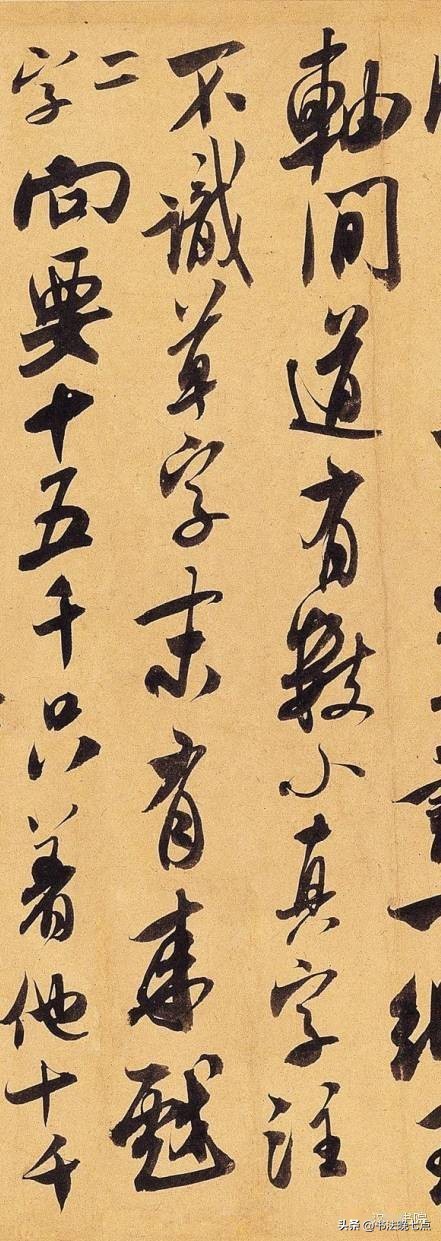 軸間道有數小真字注
不識草字末有来戲
二字向要十五千只着他十千
头条 @书法晚七点